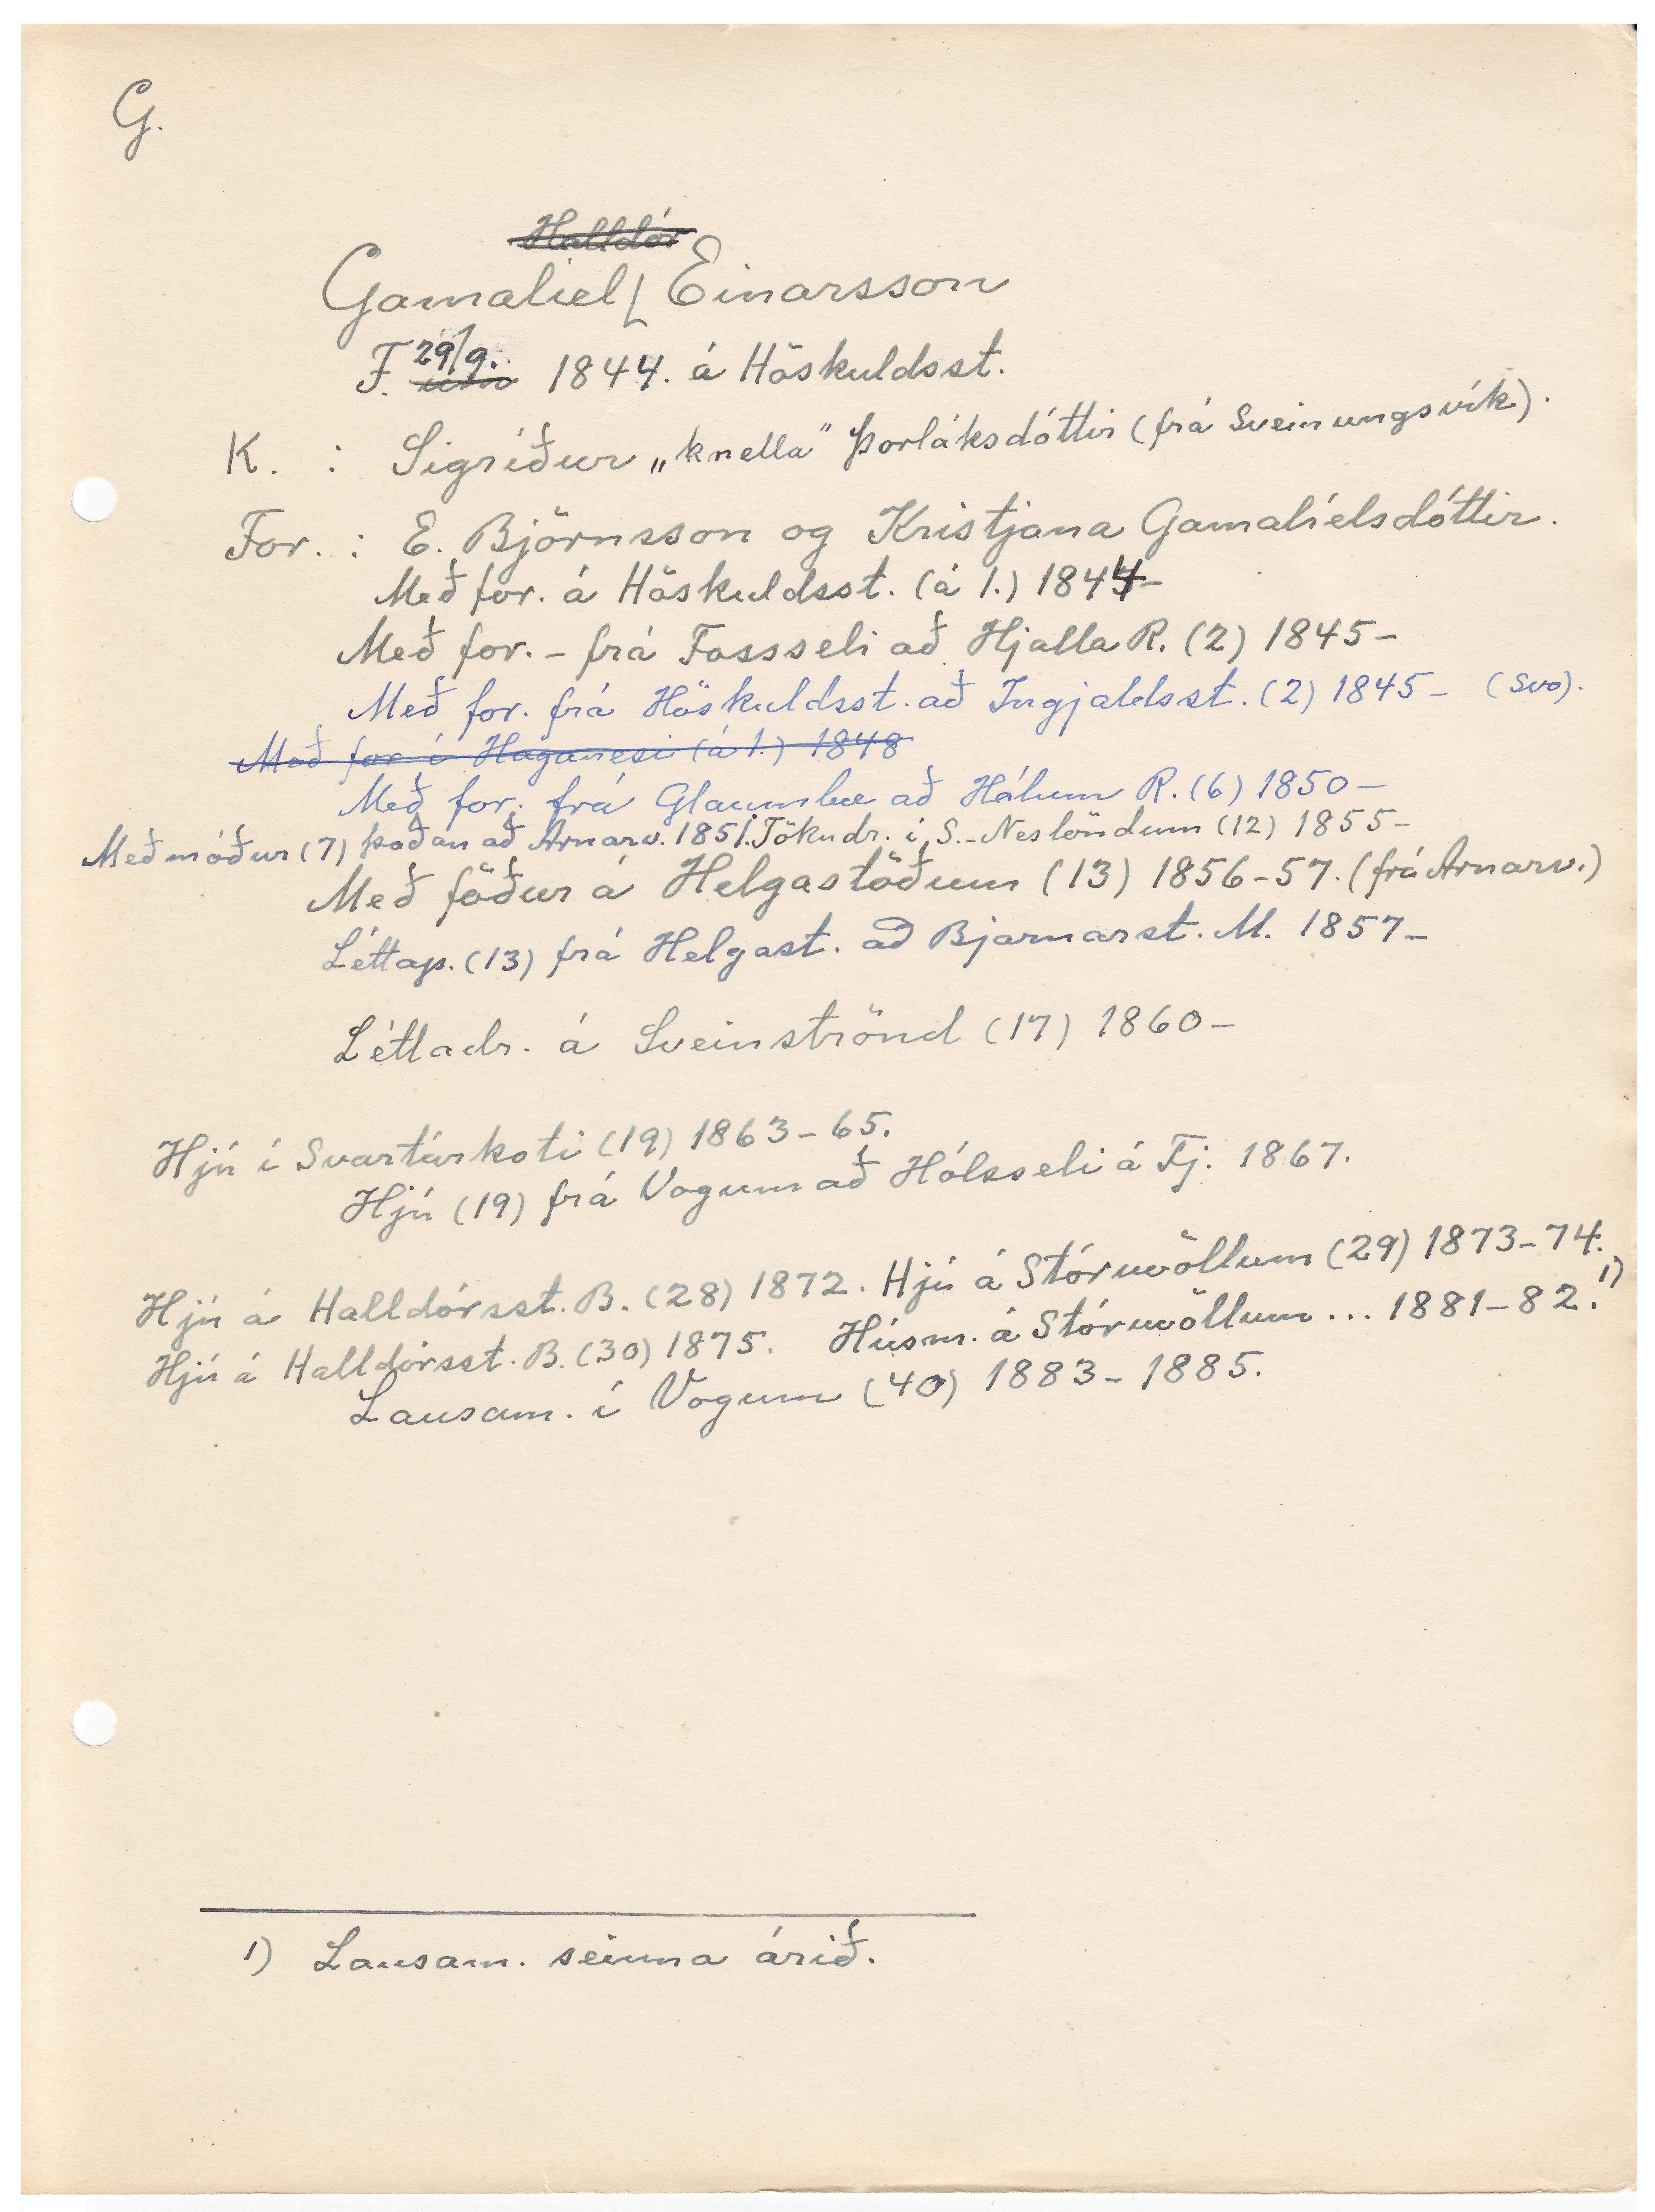 G.
Halldór
Gamalíel Einarsson
29/9.
F. 1844. á Höskuldsst.
K. : Sigríður „knella" Þorláksdóttir (frá Sveinungsvík).
For. : E. Björnsson og Kristjana Gamalíelsdóttir.
Með for. á Höskuldsst. (á 1.) 1844-
Með for. - frá Fossseli að Hjalla R. (2) 1845-
Með for. frá Höskuldsst. að Ingjaldsst. (2) 1845- (svo).
Með for í Haganesi (á 1.) 1848
Með for. frá Glaumbæ að Hólum R. (6) 1850-
Með móður (7) þaðan að Arnarv. 1851. Tökudr. í S.-Neslöndum (12) 1855-
Með föður á Helgastöðum (13) 1856-57. (frá Arnarv.)
Léttap. (13) frá Helgast. að Bjarnarst. M. 1857-
Léttadr. á Sveinströnd (17) 1860-
Hjú í Svartárkoti (19) 1863-65.
Hjú (19) frá Vogum að Hólsseli á Fj. 1867.
Hjú á Halldórsst. B. (28) 1872. Hjú á Stóruvöllum (29) 1873-74.
Hjú á Halldórsst. B. (30) 1875. Húsm. á Stóruvöllum ... 1881-82. 1)
Lausam. í Vogum (40) 1883-1885.
1) Lausam. seinna árið.